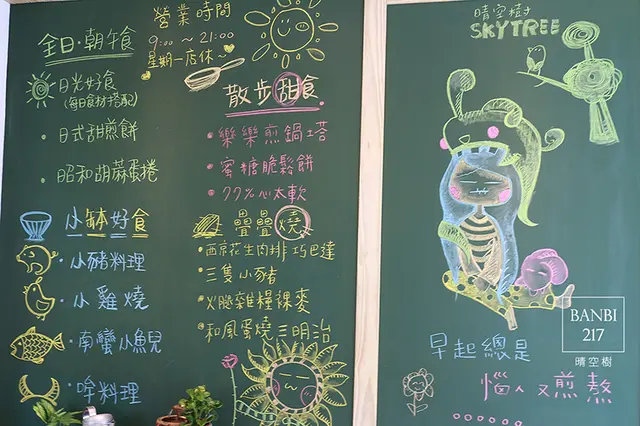 營業時間
9:00 ~ 21:00
星期一店休~
全日·朝午食
日光好食
(每日食材搭配)
日式甜煎餅
昭和胡蔴蛋捲
散步甜食
樂樂煎鍋塔
蜜糖脆鬆餅
77%心太軟
小缽好食
小豬料理
小雞燒
南蠻小魚兒
哞料理
疊疊燒
西京花生肉排巧巴達
三隻小豬
火腿雜糧裸麥
和風蛋燒三明治
晴空樹
SKYTREE
早起總是
惱人又煎熬
BANBI
217
晴空樹